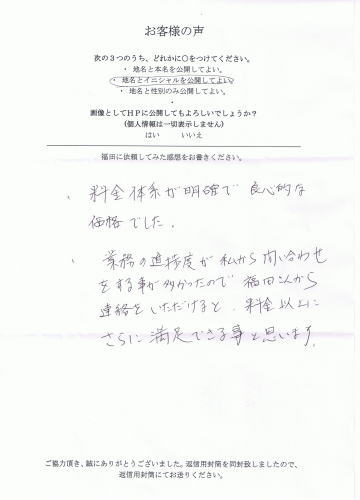 お客様の声
次の３つのうち、どれかに○をつけてください。
・ 地名と本名を公開してよい。
・ 地名とイニシャルを公開してよい。
・ 地名と性別のみ公開してよい。
・
画像としてＨＰに公開してもよろしいでしょうか？
（個人情報は一切表示しません）
はい　　いいえ
福田に依頼してみた感想をお書きください。
、料金体系が明確で良心的な
価格でした。
、業務の進捗度が私から問い合わせ
をする事が多かったので福田さんから
連絡をいただけると、料金以上に
さらに満足できる事と思います。
ご協力頂き、誠にありがとうございました。返信用封筒を同封致しましたので、
返信用封筒にてお送りください。